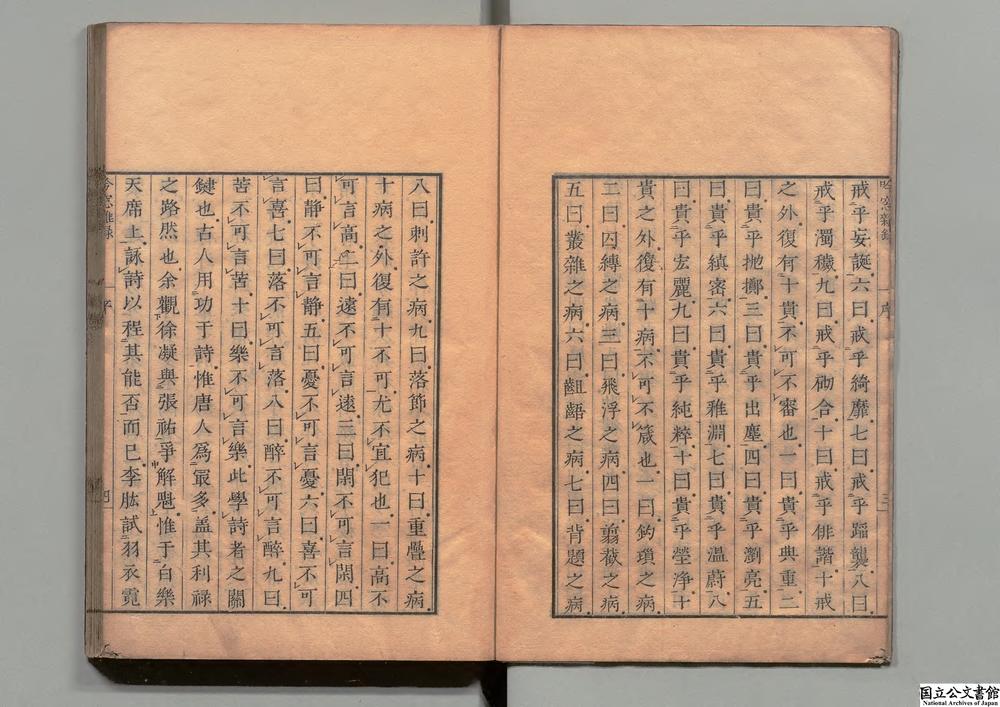 吟窓雜錄 序 三
戒乎妄誕六曰戒乎綺靡七曰戒乎蹈襲八曰
戒乎濁穢九曰戒乎砌合十曰戒乎俳諧十戒
之外復有十貴不可不審也一曰貴乎典重二
曰貴乎抛擲三曰貴乎出塵四曰貴乎瀏亮五
曰貴乎縝密六曰貴乎雅淵七曰貴乎温蔚八
曰貴乎宏麗九曰貴乎純粹十曰貴乎瑩淨十
貴之外復有十病不可不箴也一曰鈎瑣之病
二曰囚縛之病三曰飛浮之病四曰翦截之病
五曰叢雜之病六曰齟齬之病七曰背題之病
八曰刺訐之病九曰落節之病十曰重疊之病
十病之外復有十不可尤不宜犯也一曰高不
可言高二曰遠不可言遠三曰閑不可言閑四
曰静不可言静五曰憂不可言憂六曰喜不可
言喜七曰落不可言落八曰醉不可言醉九曰
苦不可言苦十曰樂不可言樂此學詩者之關
鍵也古人用功于詩惟唐人爲最多盖其利祿
之路然也余觀徐凝與張祐爭解魁惟于白樂
天席上詠詩以程其能否而已李肱試羽衣霓
吟窓雜錄 序 四
国立公文書館
National Archives of Japan